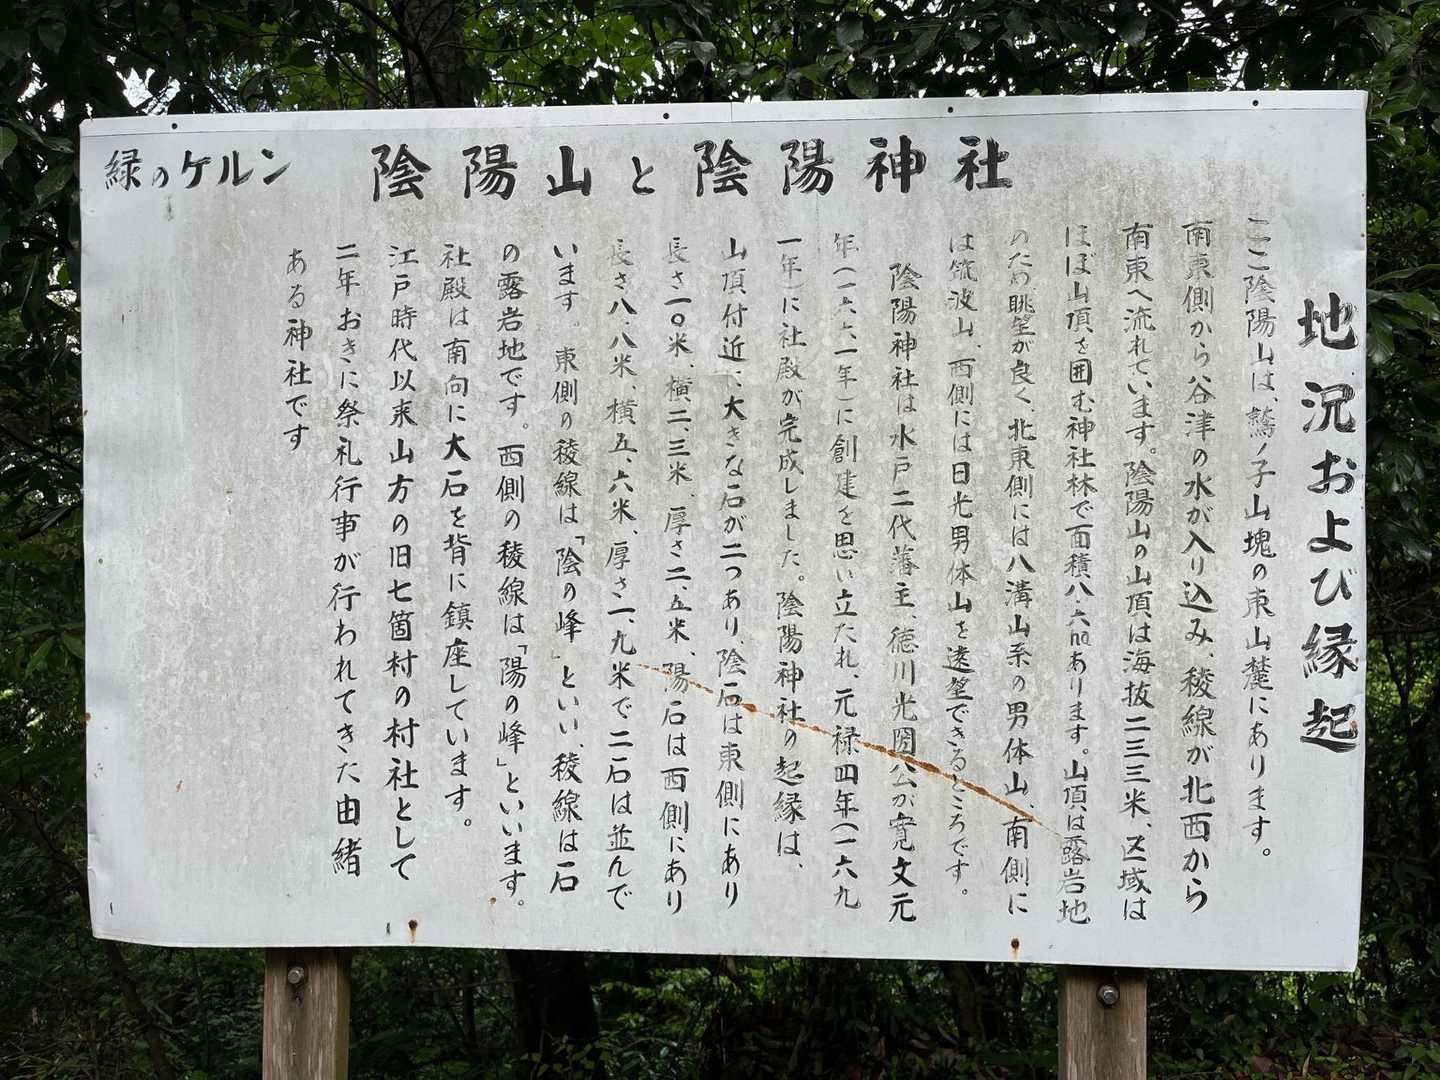 緑のケルン 陰陽山と陰陽神社
地況および縁起
ここ陰陽山は、鷲ノ子山塊の東山麓にあります。
南東側から谷津の水が入り込み、稜線が北西から
南東へ流れています。陰陽山の山頂は海抜二三三米、区域は
ほぼ山頂を囲む神社林で面積八・六haあります。山頂は露岩地
のため眺望が良く、北東側には八溝山系の男体山、南側に
は筑波山、西側には日光男体山を遠望できるところです。
陰陽神社は水戸二代藩主、徳川光圀公が寛文元
年(一六六一年)に創建を思い立たれ、元禄四年(一六九
一年)に社殿が完成しました。陰陽神社の起縁は、
山頂付近に大きな石が二つあり、陰石は東側にあり
長さ一〇米、横二、三米、厚さ二、五米、陽石は西側にあり
長さ八、八米、横五、六米、厚さ一、九米で二石は並んで
います。東側の稜線は「陰の峰」といい、稜線は石
の露岩地です。西側の稜線は「陽の峰」といいます。
社殿は南向に大石を背に鎮座しています。
江戸時代以来山方の旧七箇村の村社として
二年おきに祭礼行事が行われてきた由緒
ある神社です